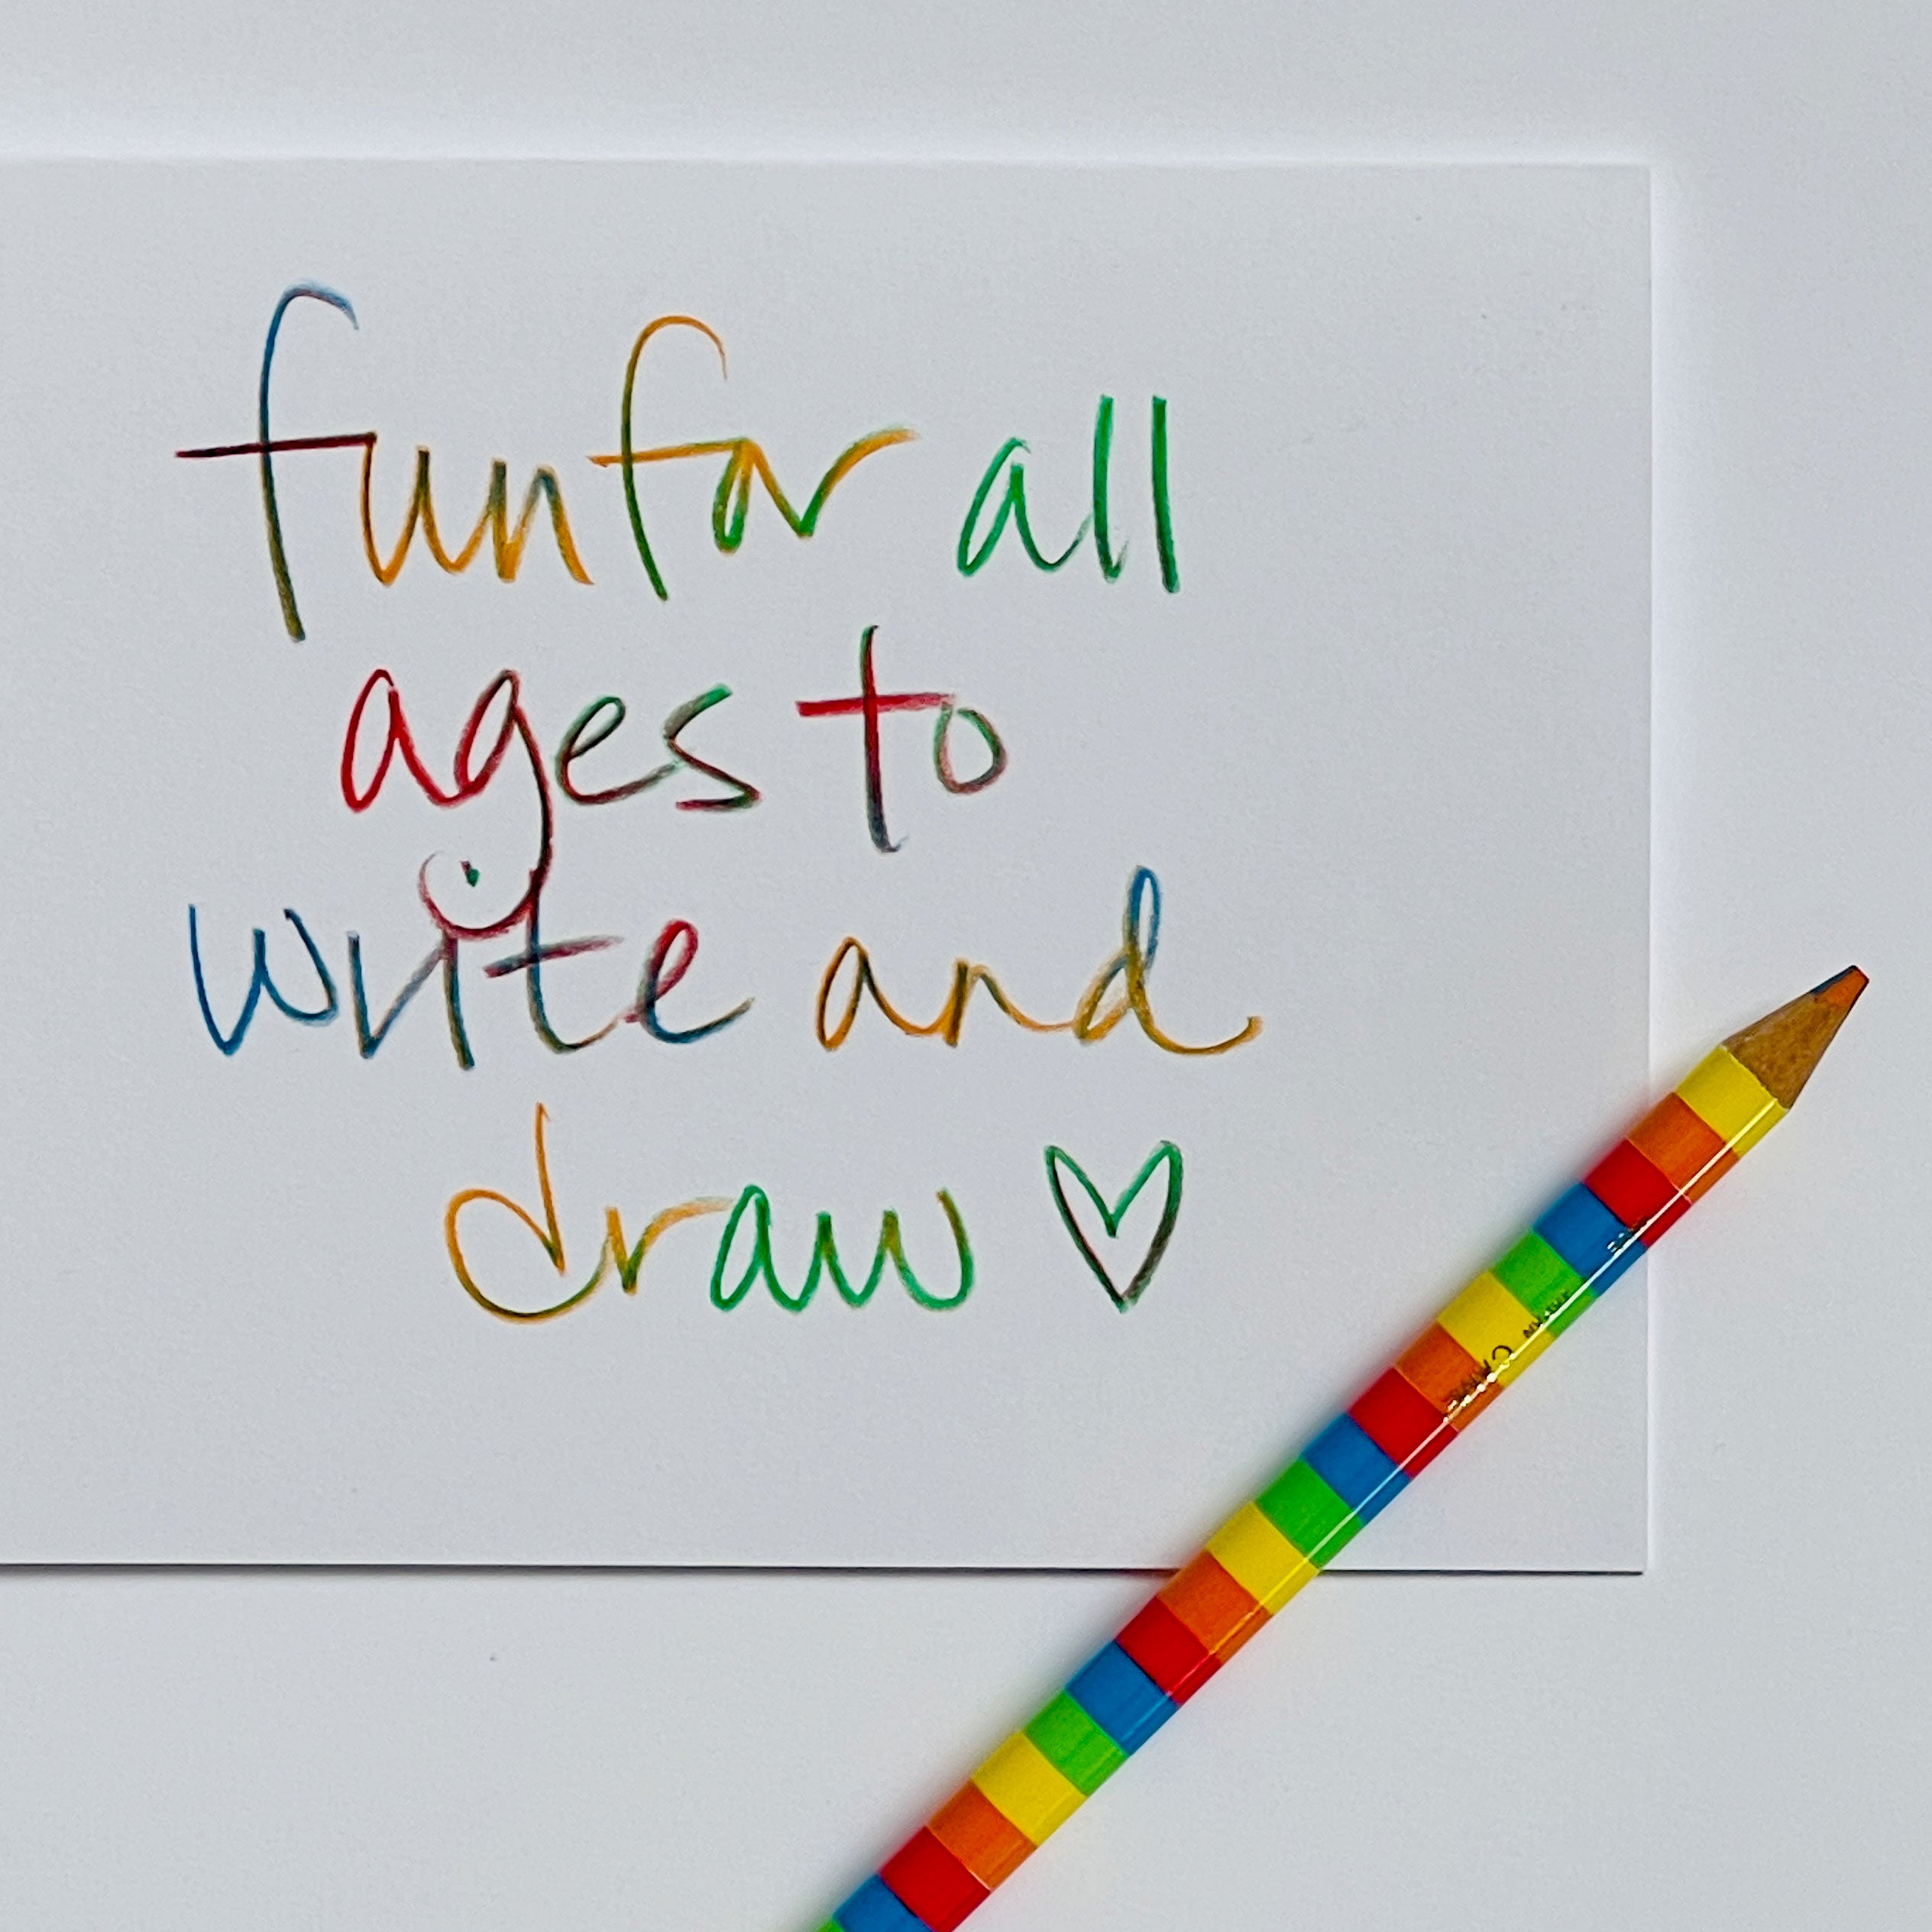 fun for all
ages to
write and
draw ♡